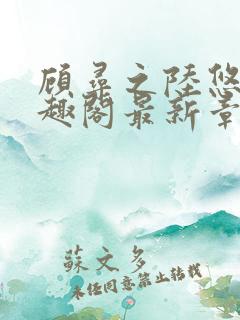 顾寻之陸悠
趣阁最新章
蘇文多
未经同意禁止转载